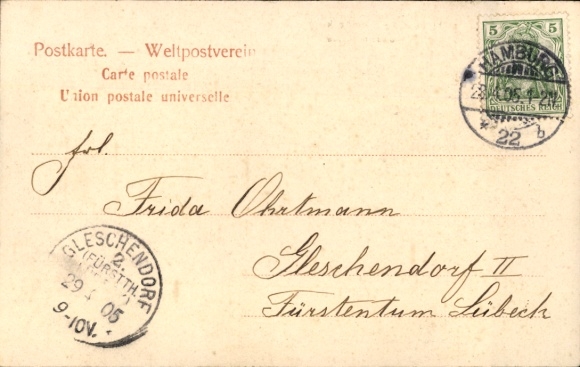 Postkarte. — Weltpostverein
Carte postale
Union postale universelle
5 5
DEUTSCHES REICH
HAMBURG
05
22
Frl.
Frida Ohrtmann
Gleschendorf II
Fürstentum Lübeck
GLESCHENDORF
2.
(FÜRSTTH.
29 05
9-10V.